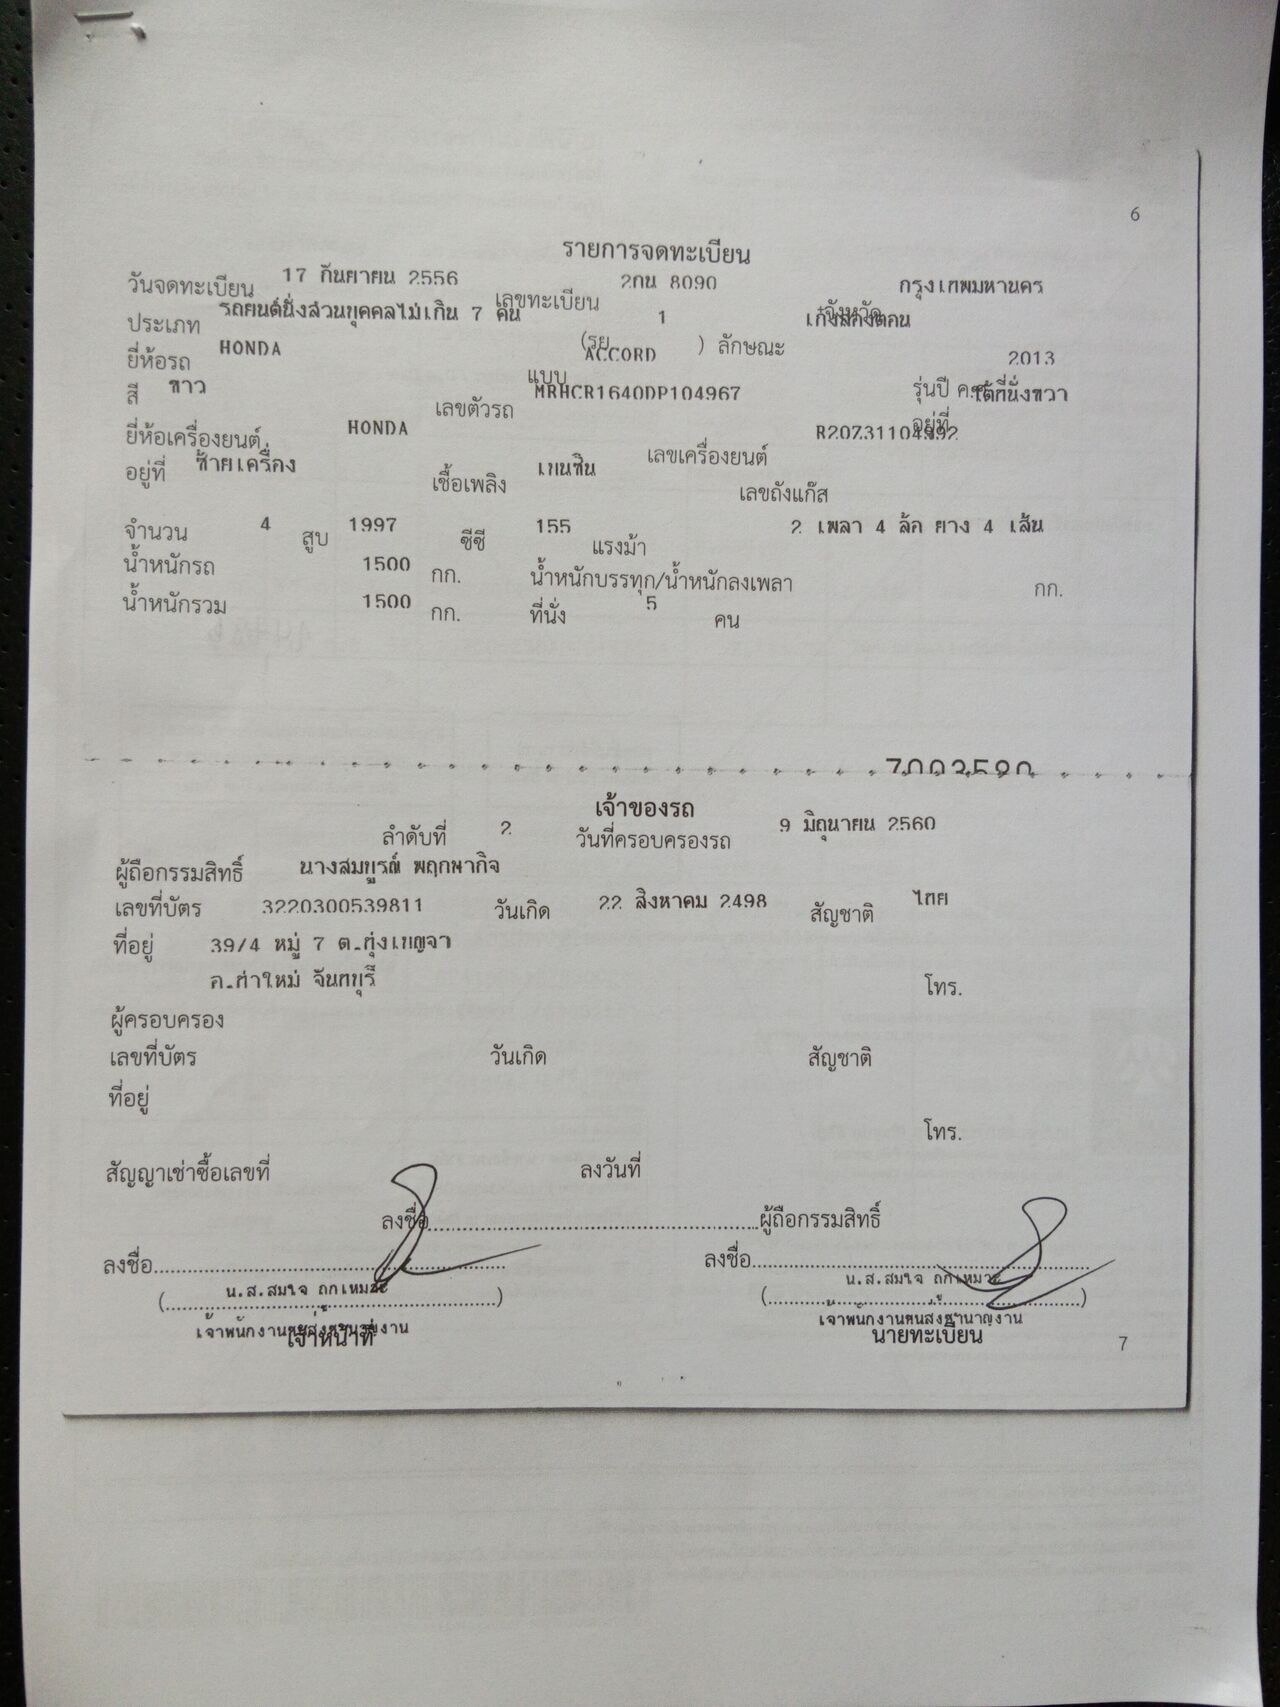 6
รายการจดทะเบียน
วันจดทะเบียน 17 กันยายน 2556 เลขทะเบียน 2กน 8090 จังหวัด กรุงเทพมหานคร
ประเภท รถยนต์นั่งส่วนบุคคลไม่เกิน 7 คน (รย. 1 ) ลักษณะ เก๋งสองตอน
ยี่ห้อรถ HONDA แบบ ACCORD รุ่นปี ค.ศ. 2013
สี ขาว เลขตัวรถ MRHCR1640DP104967 อยู่ที่ ใต้ที่นั่งขวา
ยี่ห้อเครื่องยนต์ HONDA เลขเครื่องยนต์ R20Z31104992
อยู่ที่ ซ้ายเครื่อง เชื้อเพลิง เบนซิน เลขถังแก๊ส
จำนวน 4 สูบ 1997 ซีซี 155 แรงม้า 2 เพลา 4 ล้อ ยาง 4 เส้น
น้ำหนักรถ 1500 กก. น้ำหนักบรรทุก/น้ำหนักลงเพลา กก.
น้ำหนักรวม 1500 กก. ที่นั่ง 5 คน
เจ้าของรถ
ลำดับที่ 2 วันที่ครอบครองรถ 9 มิถุนายน 2560
ผู้ถือกรรมสิทธิ์ นางสมบูรณ์ พฤกษากิจ
เลขที่บัตร 3220300539811 วันเกิด 22 สิงหาคม 2498 สัญชาติ ไทย
ที่อยู่ 39/4 หมู่ 7 ต.ทุ่งเบญจา
อ.ท่าใหม่ จันทบุรี โทร.
ผู้ครอบครอง
เลขที่บัตร วันเกิด สัญชาติ
ที่อยู่
โทร.
สัญญาเช่าซื้อเลขที่ ลงวันที่
ลงชื่อ ผู้ถือกรรมสิทธิ์
ลงชื่อ ลงชื่อ
(น.ส.สมใจ ถูกเหมาะ) (น.ส.สมใจ ถูกเหมาะ)
เจ้าพนักงานขนส่งชำนาญงาน เจ้าพนักงานขนส่งชำนาญงาน
เจ้าหน้าที่ นายทะเบียน 7